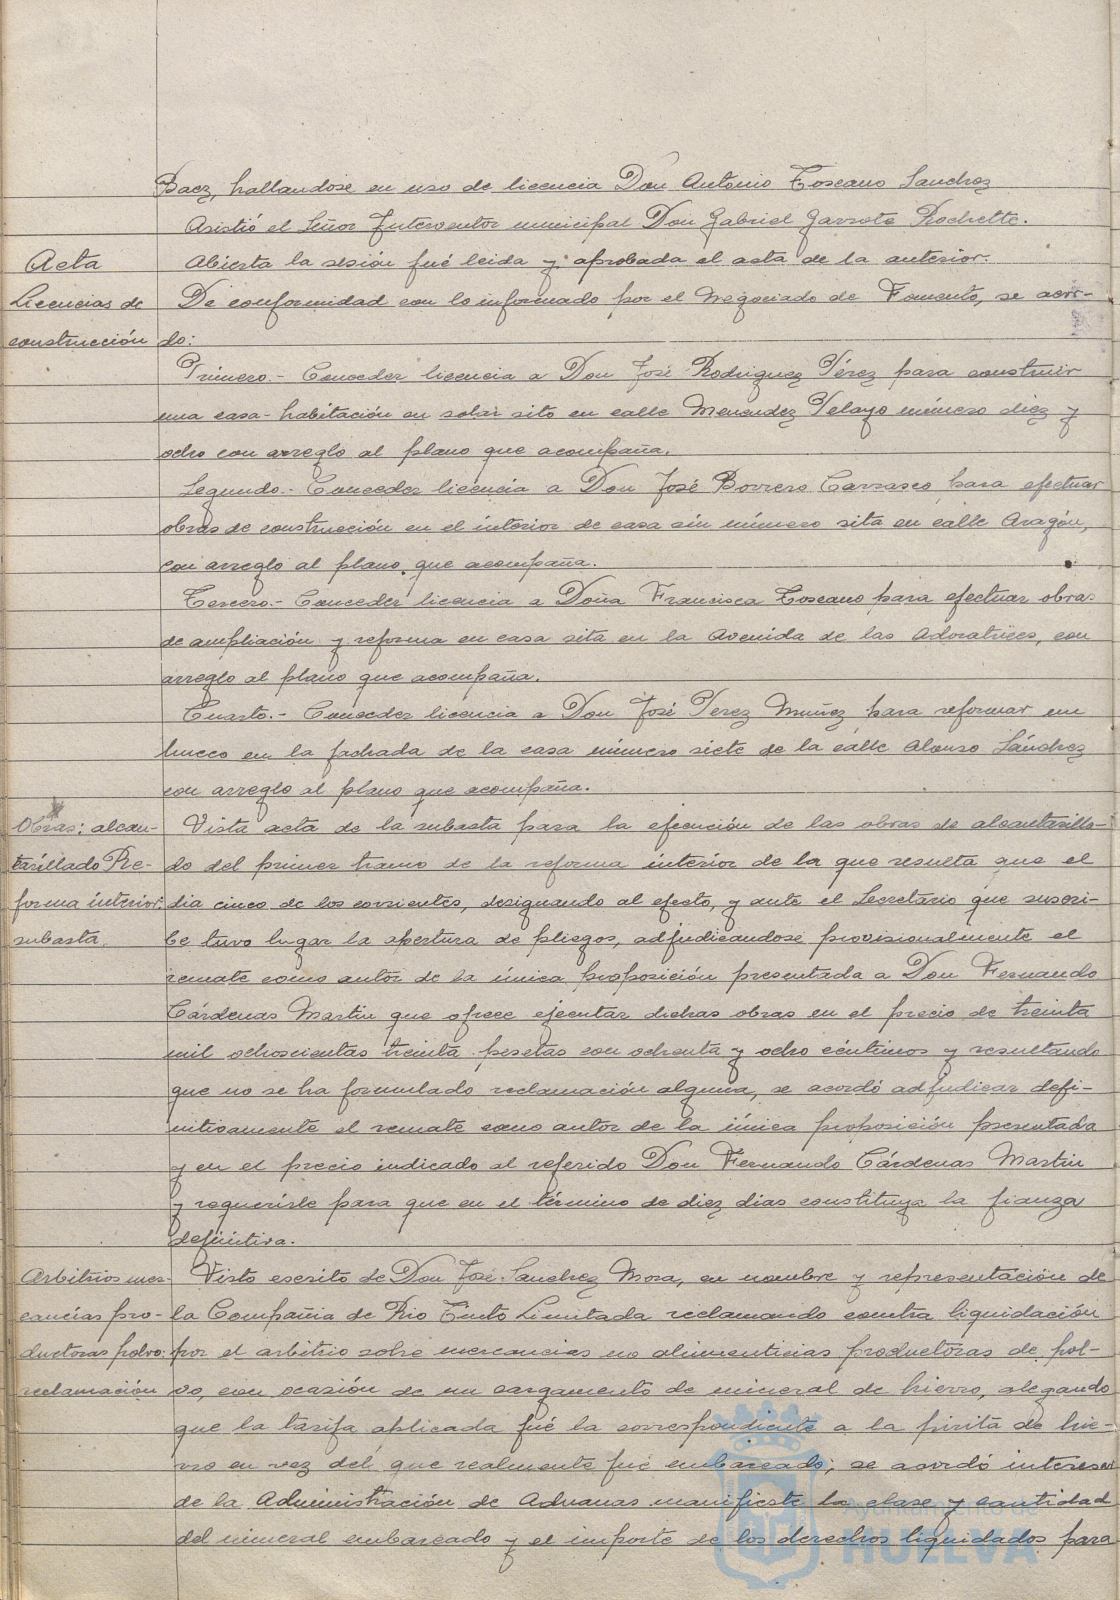 Baez, hallandose en uso de licencia Don Antonio Toscano Sanchez
Asistió el Señor Interventor municipal Don Gabriel Garrote Rochette.
Acta
Abierta la sesión fué leida y aprobada el acta de la anterior.
Licencias de
construcción
De conformidad con lo informado por el Negociado de Fomento, se acor-
do:
Primero.- Conceder licencia a Don José Rodriguez Pérez para construir
una casa-habitación en solar sito en calle Menendez Pelayo número diez y
ocho con arreglo al plano que acompaña.
Segundo.- Conceder licencia a Don José Borrero Carrasco para efectuar
obras de construcción en el interior de casa sin número sita en calle Aragón,
con arreglo al plano que acompaña.
Tercero.- Conceder licencia a Doña Francisca Toscano para efectuar obras
de ampliación y reforma en casa sita en la Avenida de las Adoratrices, con
arreglo al plano que acompaña.
Cuarto.- Conceder licencia a Don José Perez Muñez para reformar un
hueco en la fachada de la casa número siete de la calle Alonso Sánchez
con arreglo al plano que acompaña.
Obras: alcan-
tarillado Re-
forma interior:
subasta.
Vista acta de la subasta para la ejecución de las obras de alcantarilla-
do del primer tramo de la reforma interior de la que resulta que el
dia cinco de los corrientes, designando al efecto, y ante el Secretario que suscri-
be tuvo lugar la apertura de pliegos, adjudicandose provisionalmente el
remate como autor de la única proposición presentada a Don Fernando
Cárdenas Martin que ofrece ejecutar dichas obras en el precio de treinta
mil ochoscientas treinta pesetas con ochenta y ocho céntimos y resultando
que no se ha formulado reclamación alguna, se acordó adjudicar defi-
nitivamente el remate como autor de la única proposición presentada
y en el precio indicado al referido Don Fernando Cárdenas Martin
y requerirle para que en el término de diez dias constituya la fianza
definitiva.
Arbitrios mer-
cancías pro-
ductoras polvo:
reclamación
Visto escrito de Don José Sanchez Mora, en nombre y representación de
la Compañia de Rio Tinto Limitada reclamando contra liquidación
por el arbitrio sobre mercancias no alimenticias productoras de pol-
vo, con ocasión de un cargamento de mineral de hierro, alegando
que la tarifa aplicada fué la correspondiente a la pirita de hie-
rro en vez del que realmente fué embarcado; se acordó interesar
de la Administración de Aduanas manifieste la clase y cantidad
del mineral embarcado y el importe de los derechos liquidados para
Ayuntamiento de
HUELVA